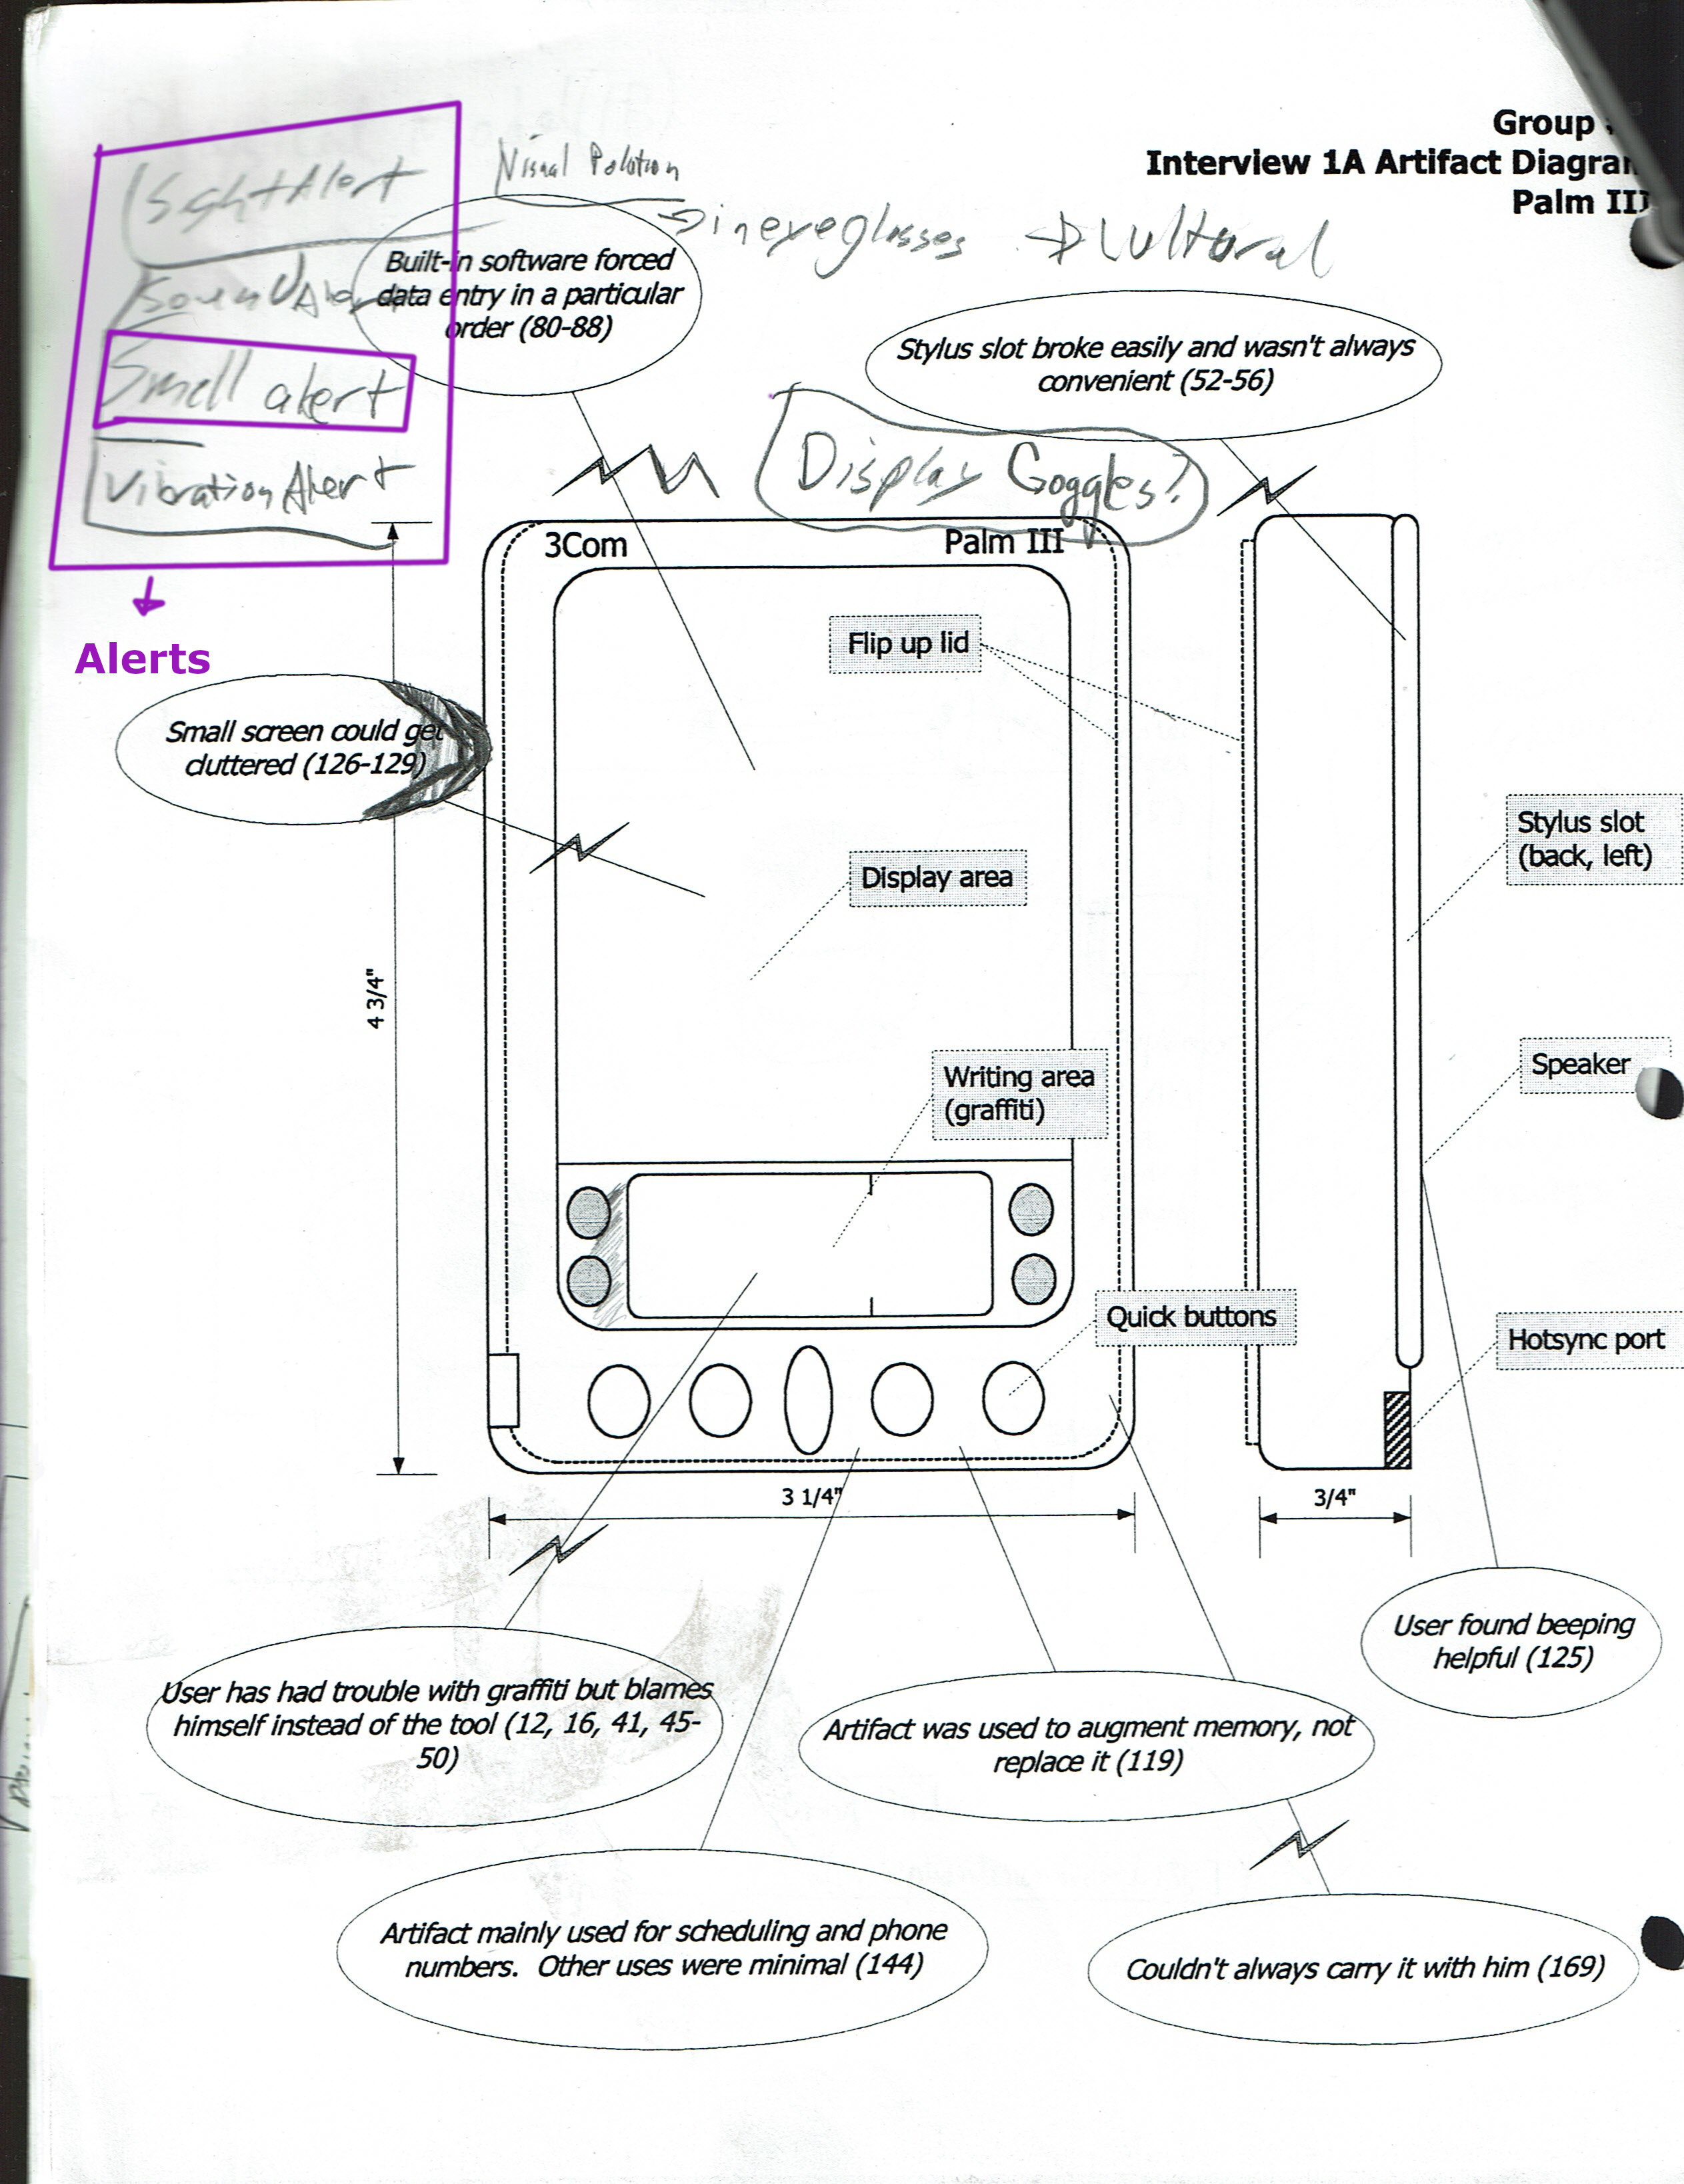 Group
Interview 1A Artifact Diagram
Palm III
Sight Alert
Visual Polution
in eyeglasses → Cultural
Sound Alert
Built-in software forced
data entry in a particular
order (80-88)
Stylus slot broke easily and wasn't always
convenient (52-56)
Smell alert
Display Goggles?
Vibration Alert
3Com Palm III
Alerts
Flip up lid
Small screen could get
cluttered (126-129)
Stylus slot
(back, left)
Display area
4 3/4"
Writing area
(graffiti)
Speaker
Quick buttons
Hotsync port
3 1/4"
3/4"
User found beeping
helpful (125)
User has had trouble with graffiti but blames
himself instead of the tool (12, 16, 41, 45-
50)
Artifact was used to augment memory, not
replace it (119)
Artifact mainly used for scheduling and phone
numbers. Other uses were minimal (144)
Couldn't always carry it with him (169)